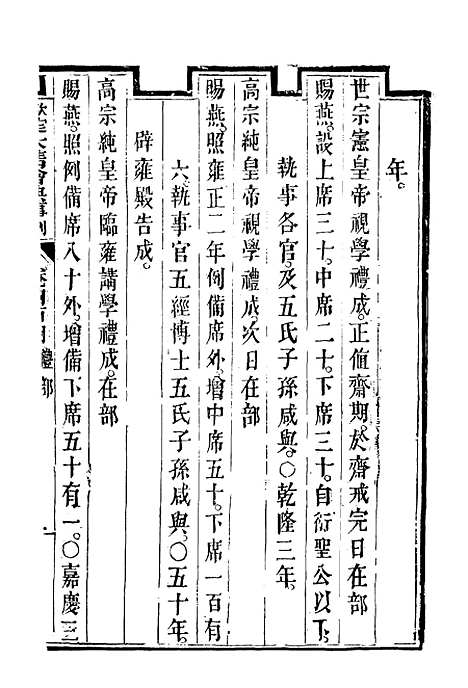 年。
世宗憲皇帝視學禮成。正值齋期。於齋戒完日在部
賜燕。設上席三十。中席二十。下席三十。自衍聖公以下。
執事各官。及五氏子孫咸與。○乾隆三年。
高宗純皇帝視學禮成。次日在部
賜燕。照雍正二年例備席外。增中席五十。下席一百有
六。執事官五經博士五氏子孫咸與。○五十年。
辟雍殿告成。
高宗純皇帝臨雍講學禮成。在部
賜燕。照例備席八十外。增備下席五十有一。○嘉慶三
欽定大清會典事例 禮部